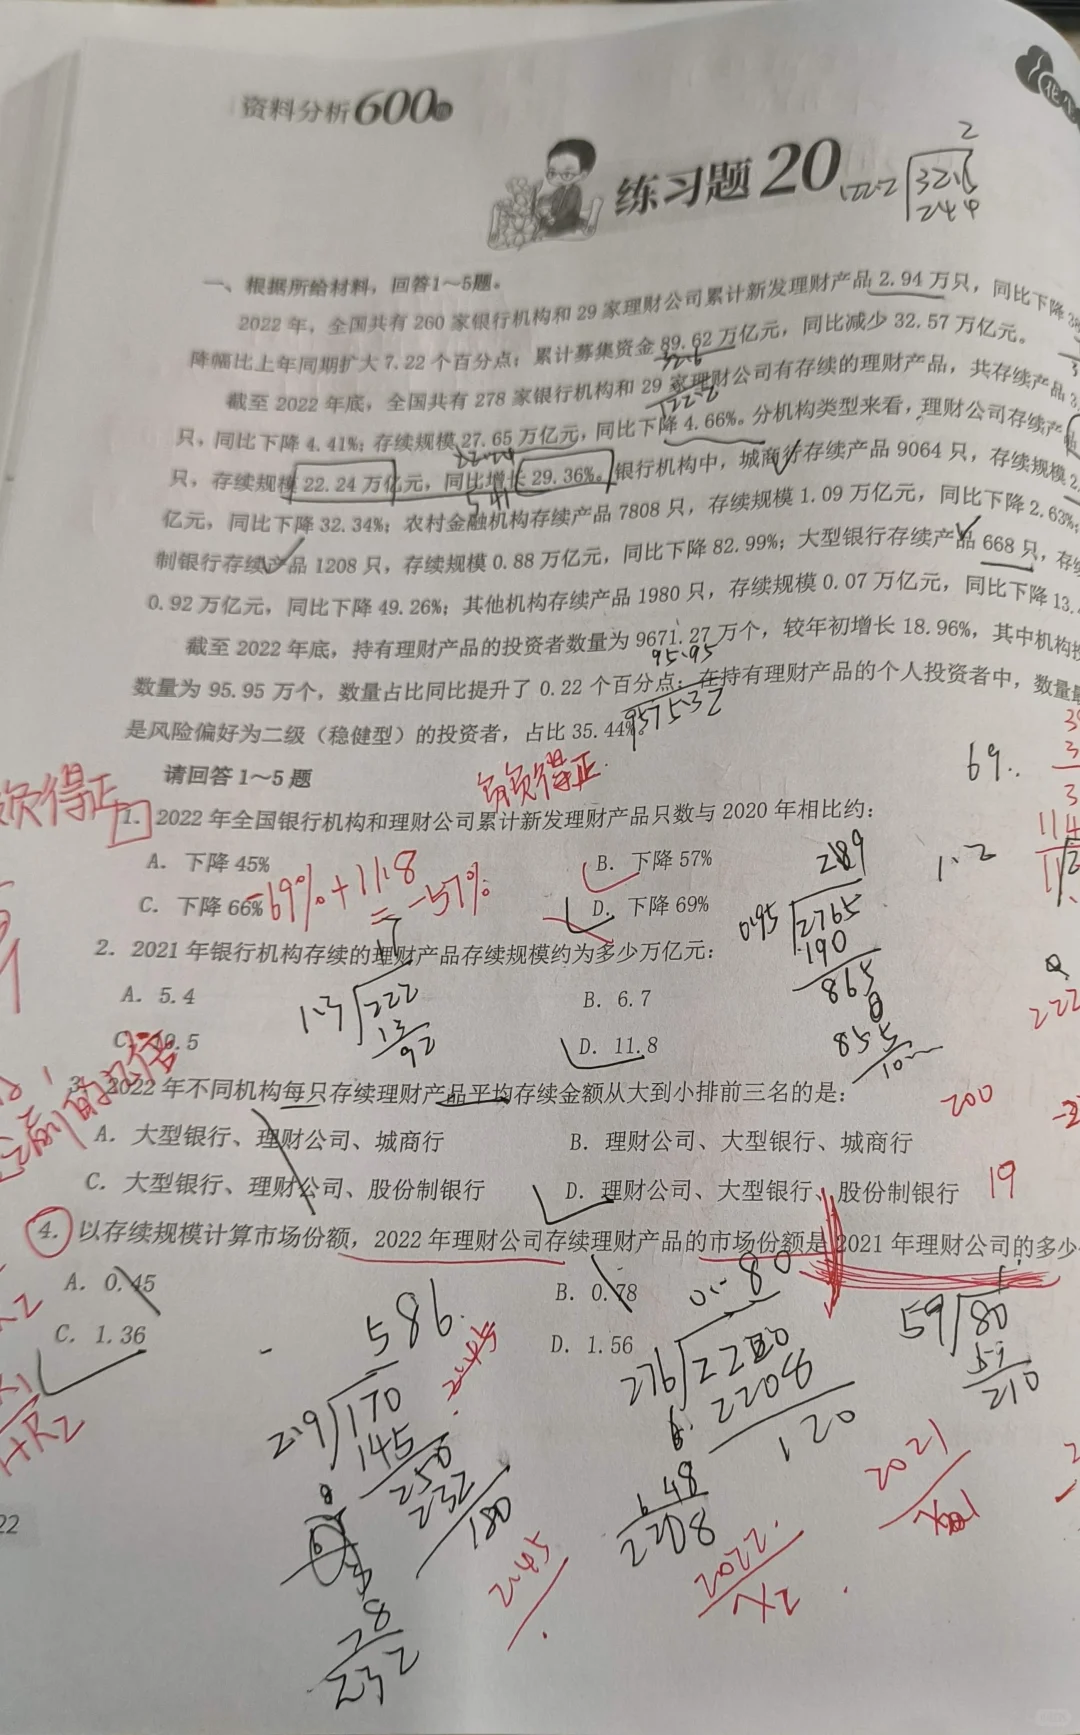 资料分析600
练习题20
2
122.2 32.6
244
一、根据所给材料，回答1～5题。
2022年，全国共有260家银行机构和29家理财公司累计新发理财产品2.94万只，同比下降
降幅比上年同期扩大7.22个百分点；累计募集资金89.62万亿元，同比减少32.57万亿元。
32.6
122.2
截至2022年底，全国共有278家银行机构和29家理财公司有存续的理财产品，共存续产品
只，同比下降4.41%；存续规模27.65万亿元，同比下降4.66%。分机构类型来看，理财公司存续产
22.24
5.41
只，存续规模22.24万亿元，同比增长29.36%。银行机构中，城商行存续产品9064只，存续规模2
亿元，同比下降32.34%；农村金融机构存续产品7808只，存续规模1.09万亿元，同比下降2.63%；
制银行存续产品1208只，存续规模0.88万亿元，同比下降82.99%；大型银行存续产品668只，存续
0.92万亿元，同比下降49.26%；其他机构存续产品1980只，存续规模0.07万亿元，同比下降13.
截至2022年底，持有理财产品的投资者数量为9671.27万个，较年初增长18.96%，其中机构投
95.95
957532
数量为95.95万个，数量占比同比提升了0.22个百分点；在持有理财产品的个人投资者中，数量最
是风险偏好为二级（稳健型）的投资者，占比35.44%。
请回答1～5题
负负得正
负负得正
69..
1.2
1. 2022年全国银行机构和理财公司累计新发理财产品只数与2020年相比约：
A. 下降45%
B. 下降57%
C. 下降66%
D. 下降69%
-69%+11.8
=-57%
289
0.95 2765
190
865
855
10
2. 2021年银行机构存续的理财产品存续规模约为多少万亿元：
A. 5.4
B. 6.7
C. 10.5
D. 11.8
17
1.3 222
13
92
222
3. 2022年不同机构每只存续理财产品平均存续金额从大到小排前三名的是：
A. 大型银行、理财公司、城商行
B. 理财公司、大型银行、城商行
C. 大型银行、理财公司、股份制银行
D. 理财公司、大型银行、股份制银行
200
19
4. 以存续规模计算市场份额，2022年理财公司存续理财产品的市场份额是2021年理财公司的多少
A. 0.45
B. 0.78
C. 1.36
D. 1.56
586
2.9 170
145
250
232
180
28
232
80
276 2220
2208
120
48
2208
59 80
59
210
2.45
2022
2021
22